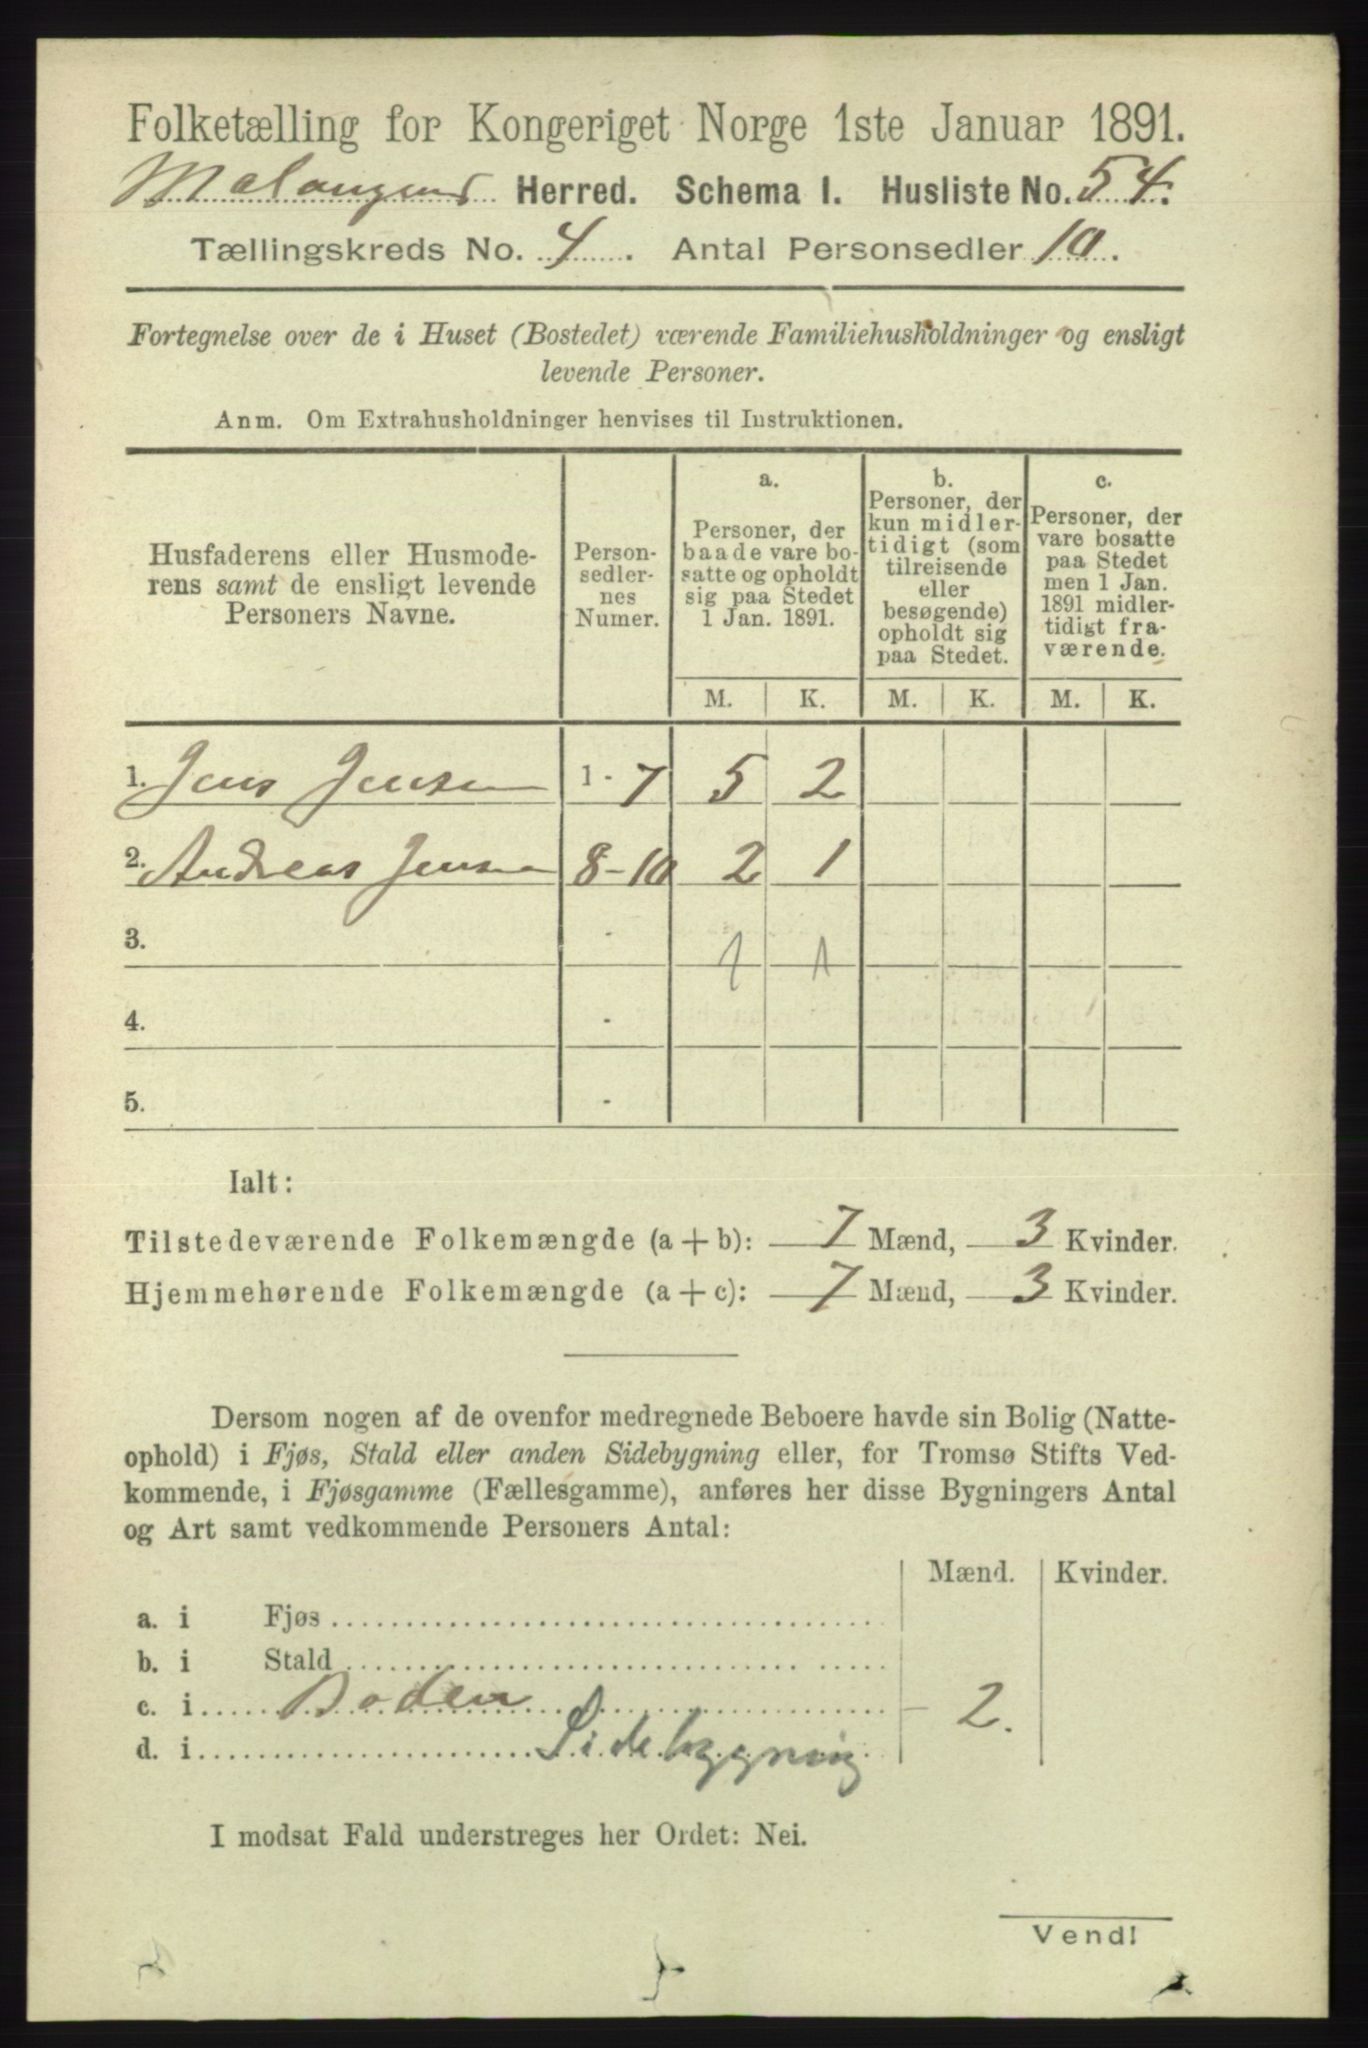 Folketælling for Kongeriget Norge 1ste Januar 1891.
Malangens Herred. Schema I. Husliste No. 54.
Tællingskreds No. 4. Antal Personsedler 10.
Fortegnelse over de i Huset (Bostedet) værende Familiehusholdninger og ensligt
levende Personer.
Anm. Om Extrahusholdninger henvises til Instruktionen.
Husfaderens eller Husmode-
rens samt de ensligt levende
Personers Navne.
Person-
sedler-
nes
Numer.
a.
Personer, der
baade vare bo-
satte og opholdt
sig paa Stedet
1 Jan. 1891.
b.
Personer, der
kun midler-
tidigt (som
tilreisende
eller
besøgende)
opholdt sig
paa Stedet.
c.
Personer, der
vare bosatte
paa Stedet
men 1 Jan.
1891 midler-
tidigt fra-
værende.
M. K. M. K. M. K.
1. Jens Jensen 1-7 5 2
2. Andreas Jensen 8-10 2 1
3. - 1 1
4. -
5. -
Ialt:
Tilstedeværende Folkemængde (a+b): 7 Mænd, 3 Kvinder.
Hjemmehørende Folkemængde (a+c): 7 Mænd, 3 Kvinder.
Dersom nogen af de ovenfor medregnede Beboere havde sin Bolig (Natte-
ophold) i Fjøs, Stald eller anden Sidebygning eller, for Tromsø Stifts Ved-
kommende, i Fjøsgamme (Fællesgamme), anføres her disse Bygningers Antal
og Art samt vedkommende Personers Antal:
Mænd. Kvinder.
a. i Fjøs
b. i Stald
c. i Boden - 2.
d. i Sidebygning
I modsat Fald understreges her Ordet: Nei.
Vend!